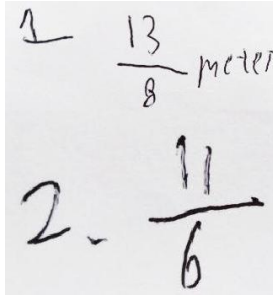 1 13/8 meter
2. 11/6